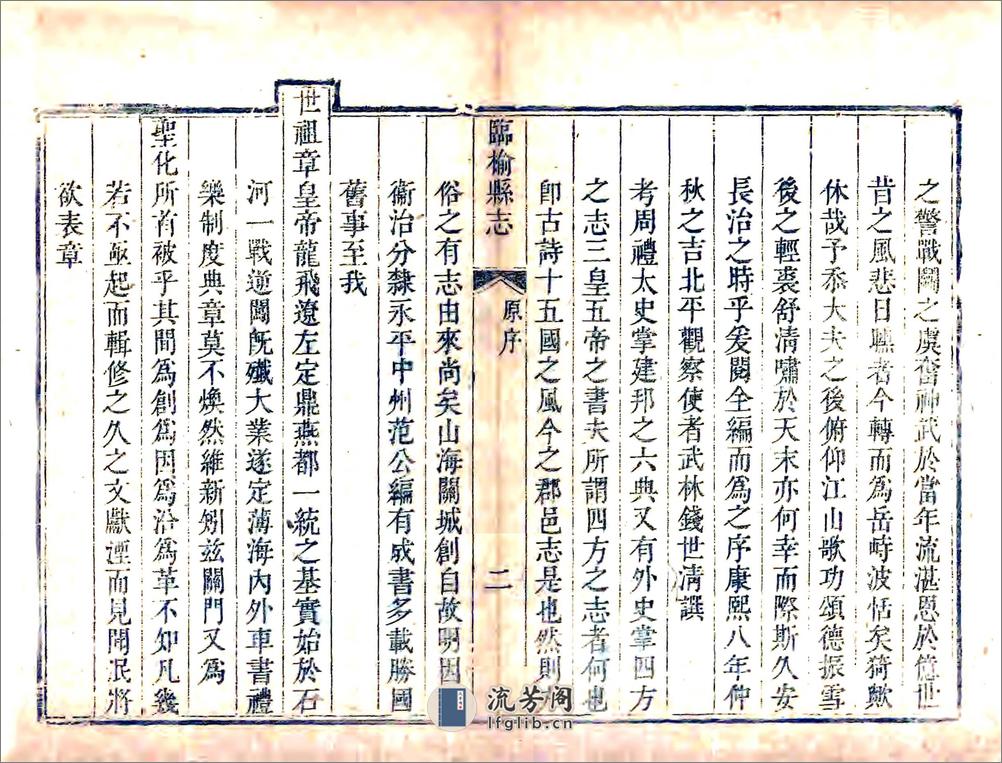 之警戰鬭之虞奮神武於當年流湛恩於億世
昔之風悲日曛者今轉而爲岳峙波恬矣猗歟
休哉予忝大夫之後俯仰江山歌功頌德振雪
後之輕裘舒清嘯於天末亦何幸而際斯久安
長治之時乎爰閱全編而爲之序康熙八年仲
秋之吉北平觀察使者武林錢世淸譔
考周禮太史掌建邦之六典又有外史掌四方
之志三皇五帝之書夫所謂四方之志者何也
卽古詩十五國之風今之郡邑志是也然則
臨榆縣志
原序
二
俗之有志由來尚矣山海關城創自故明因
衞治分隸永平中州范公編有成書多載勝國
舊事至我
世祖章皇帝龍飛遼左定鼎燕都一統之基實始於石
河一戰逆闖旣殲大業遂定薄海內外車書禮
樂制度典章莫不煥然維新矧兹關門又爲
聖化所首被乎其間爲創爲因爲沿爲革不知凡幾
若不亟起而輯修之久之文獻湮而見聞泯將
欲表章
流芳阁
lfglib.cn